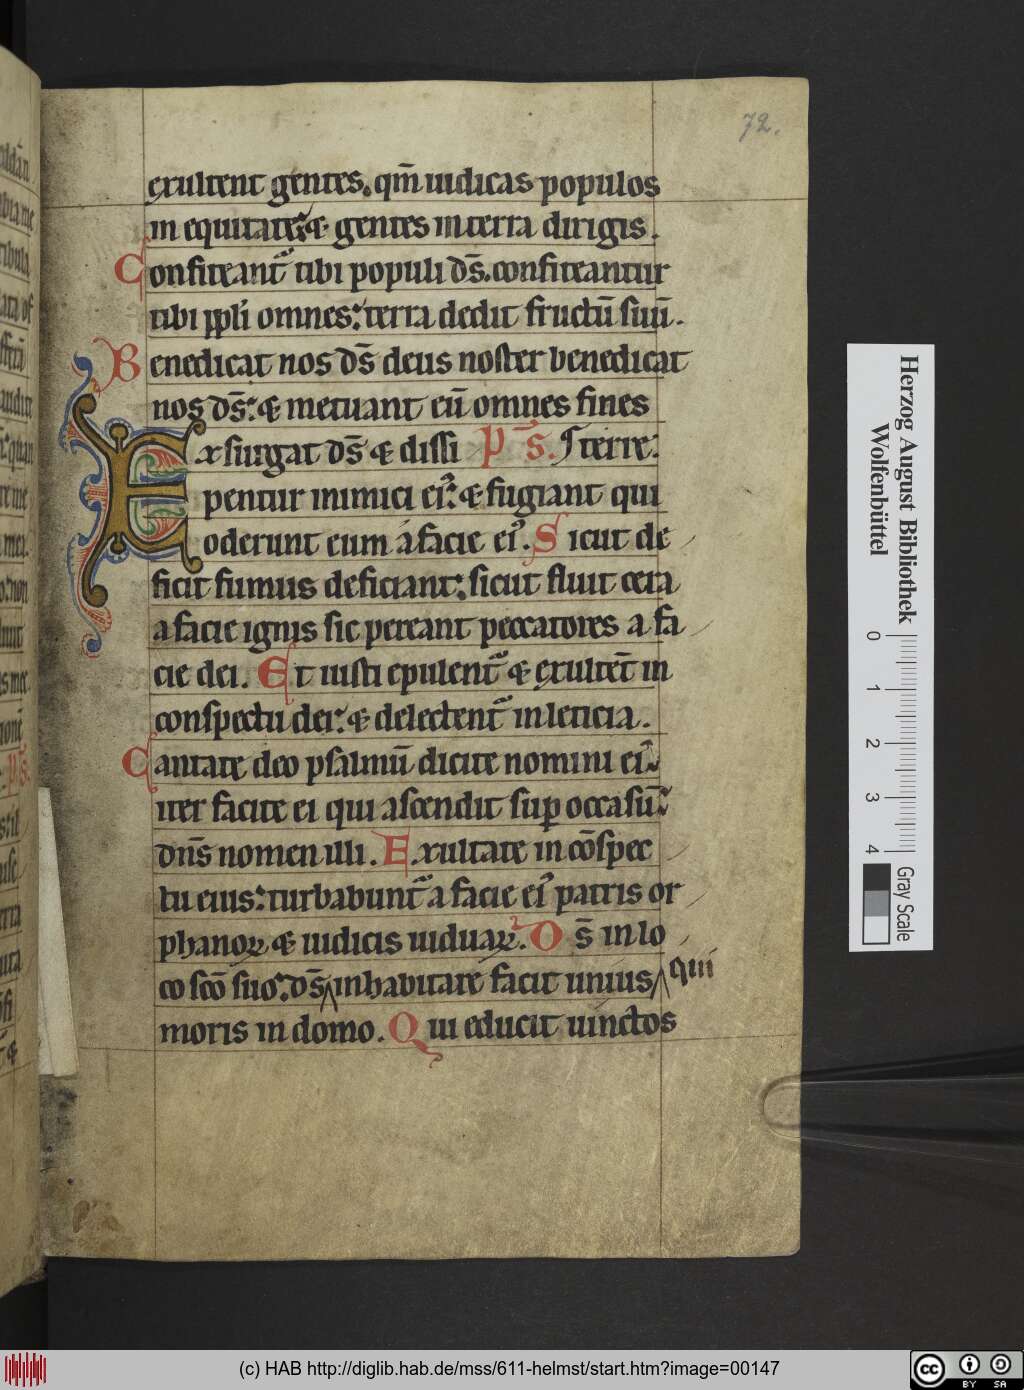 72.
exultent gentes. qm̄ iudicas populos
in equitate: & gentes in terra dirigis.
Confiteant᷑ tibi populi ds̄. confiteantur
tibi ppl̓i omnes: terra dedit fructū suū.
Benedicat nos ds̄ deus noster benedicat
nos ds̄: & metuant eū omnes fines
Exsurgat ds̄ & dissi P̄s. terre:
pentur inimici ei᾽: & fugiant qui
oderunt eum a facie ei᾽. Sicut de
ficit fumus deficiant: sicut fluit cera
a facie ignis sic pereant peccatores a fa
cie dei. Et iusti epulent᷑ & exultēt in
conspectu dei: & delectent᷑ in leticia.
Cantate deo psalmū dicite nomini ei᾽
iter facite ei qui ascendit sup̱ occasū:
dn̄s nomen illi. Exultate in cōspec
tu eius: turbabunt᷑ a facie ei᾽ patris or
phanoꝝ & iudicis uiduaꝝ. Ds̄ in lo
co sc̄o suo: ds̄ inhabitare facit unius qui
moris in domo. Qui educit uinctos
Herzog August Bibliothek
Wolfenbüttel
0 1 2 3 4
Gray Scale
(c) HAB http://diglib.hab.de/mss/611-helmst/start.htm?image=00147
cc BY SA